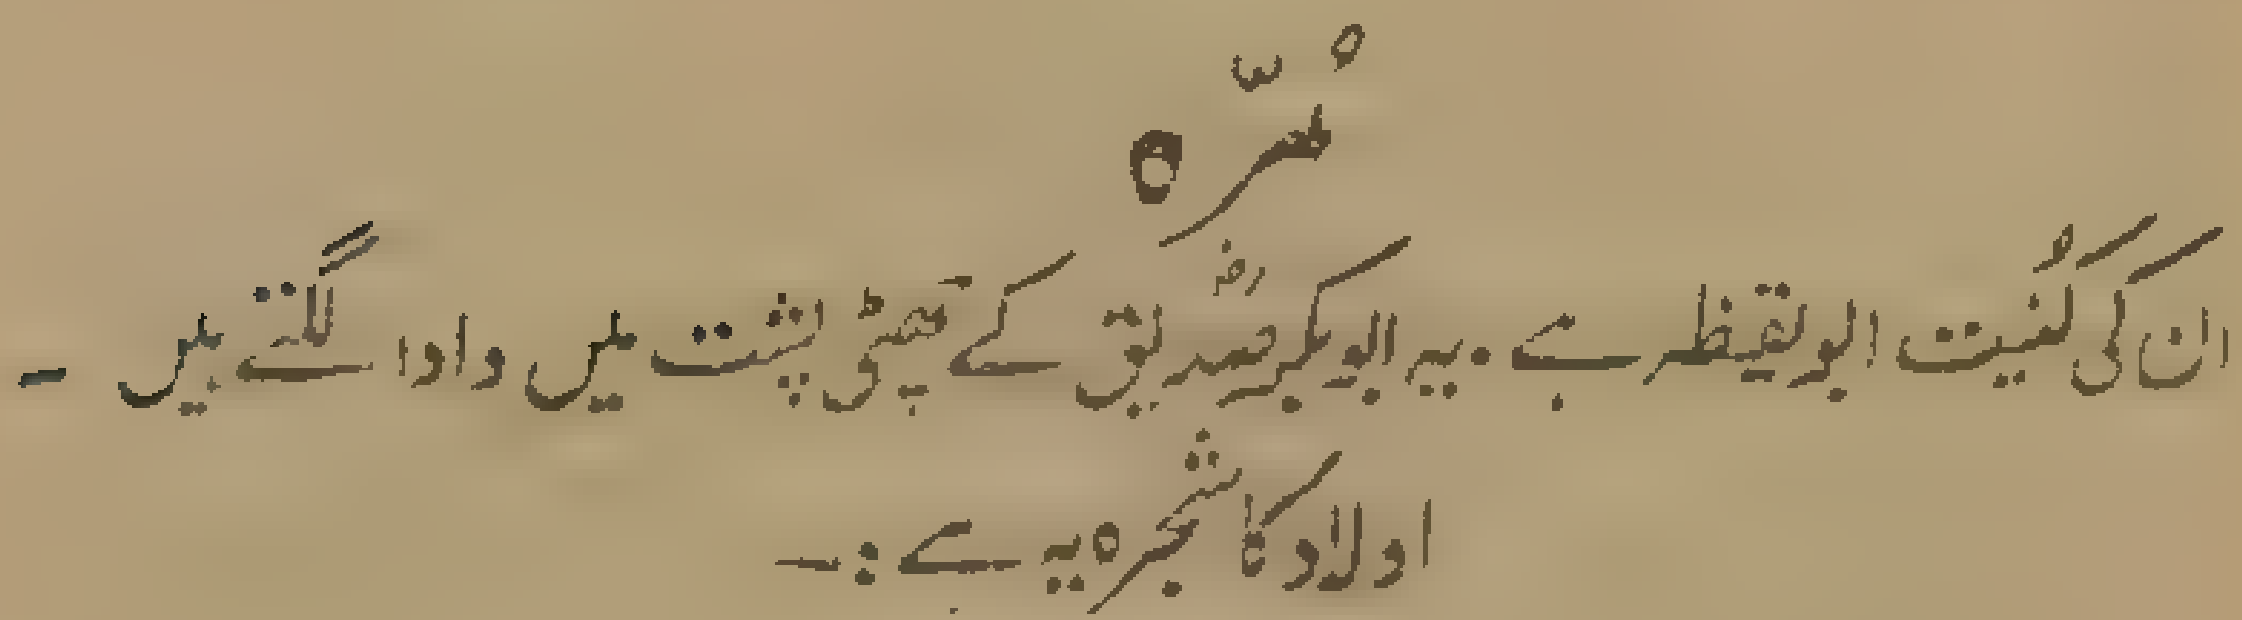 مُرّہ
ان کی کُنیت ابویقیظہ ہے ۔ یہ ابوبکر صدیقؓ کے چھٹی پشت میں دادا لگتے ہیں ۔
اولاد کا شجرہ یہ ہے :۔